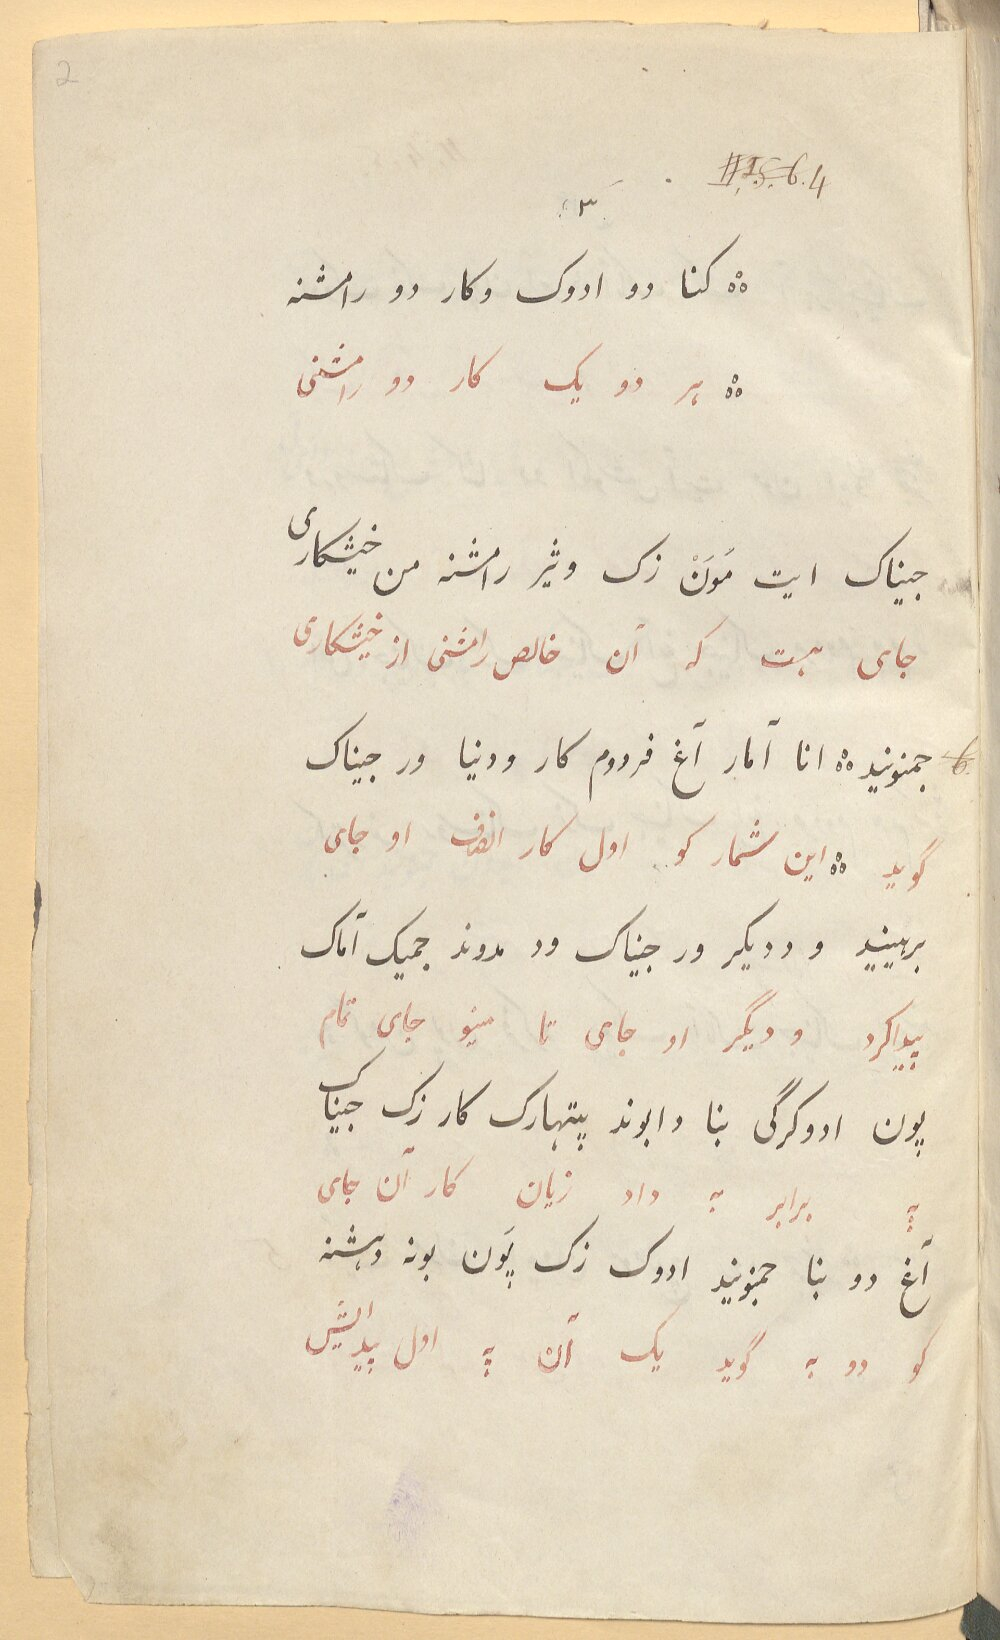 2
II. I. S. 6. 4
۳
ⷮ كنا دو ادوک وكار دو رامشنه
هر دو یک كار دو رامشنی
جیناک ایت مَوَنْ زک وثیر رامشنه من خیشكاری
جای هست كه آن خالص رامشنی از خیشكاری
6. جمنونید انا آمار آغ فردوم كار ودنیا ور جیناک
گوید این شمار كو اول كار او جای
برهینید و ددیگر ور جیناک ود مدوند جمیک آماک
پیداكرد و دیگر او جای تا مینو جای تمام
پون ادوكرگی بنا دابوند پیتهارک كار زک جیناک
په برابر به داد زیان كار آن جای
آغ دو بنا جمنونید ادوک زک پَون بونه دهشنه
كو دو به گوید یک آن په اول پیدایش